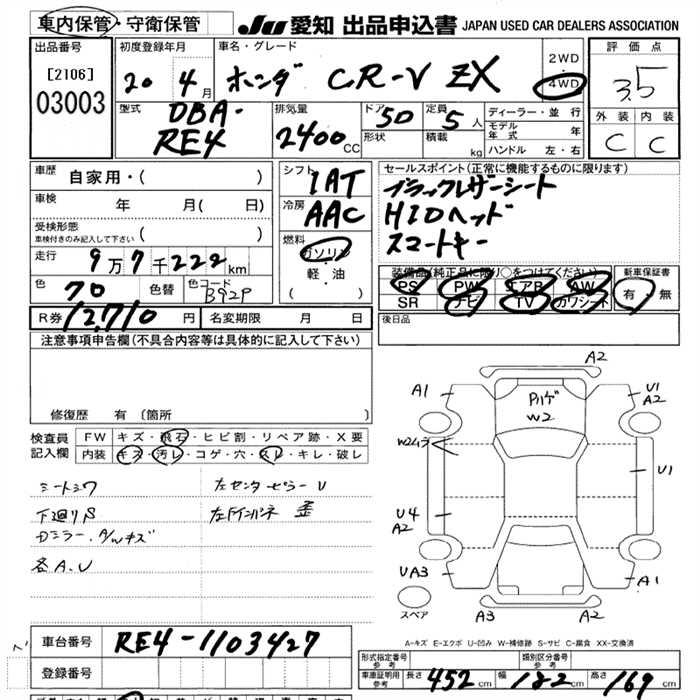 車内保管・守衛保管 JU 愛知 出品申込書 JAPAN USED CAR DEALERS ASSOCIATION
出品番号 [2106] 03003
初度登録年月 20 年 4 月
車名・グレード ホンダ CR-V ZX
2WD・4WD
評価点 3.5
外装 C 内装 C
型式 DBA-RE4
排気量 2400 CC
ドア 5D 形状
定員 5 人 積載 kg
ディーラー・並行
モデル年式 年
ハンドル 左・右
車歴 自家用・( )
車検 年 月( 日)
受検形態 車検付きのみ記入して下さい ( )
走行 9万7千222km
色 70 色替 色コード B92P
シフト 1AT
冷房 AAC
燃料 ガソリン・軽油 ( )
R券 12,710 円 名変期限 月 日
セールスポイント(正常に機能するものに限ります)
ブラックレザーシート
HIDヘッド
スマートキー
装備品(純正品に限り○をつけてください)
PS PW エアB AW
SR ナビ TV カワシート
新車保証書 有・無
後日品
注意事項申告欄(不具合内容等は具体的に記入して下さい)
修復歴 有(箇所 )
検査員記入欄
FW キズ・飛石・ヒビ割・リペア跡・X要
内装 キズ・汚レ・コゲ・穴・スレ・キレ・破レ
シートシワ 左センターピラーU
下廻りS
Dミラー、A/Wキズ
各A、U
A2
A1
U1
A2
W2
U1
U4
A2
UA3
A1
A3
A2
スペア
A-キズ E-エクボ U-凹み W-補修跡 S-サビ C-腐食 XX-交換済
車台番号 RE4-1103427
登録番号
形式指定番号 参考 類別区分番号 参考
車庫証明用 参考 長さ 452 cm 幅 182 cm 高さ 169 cm